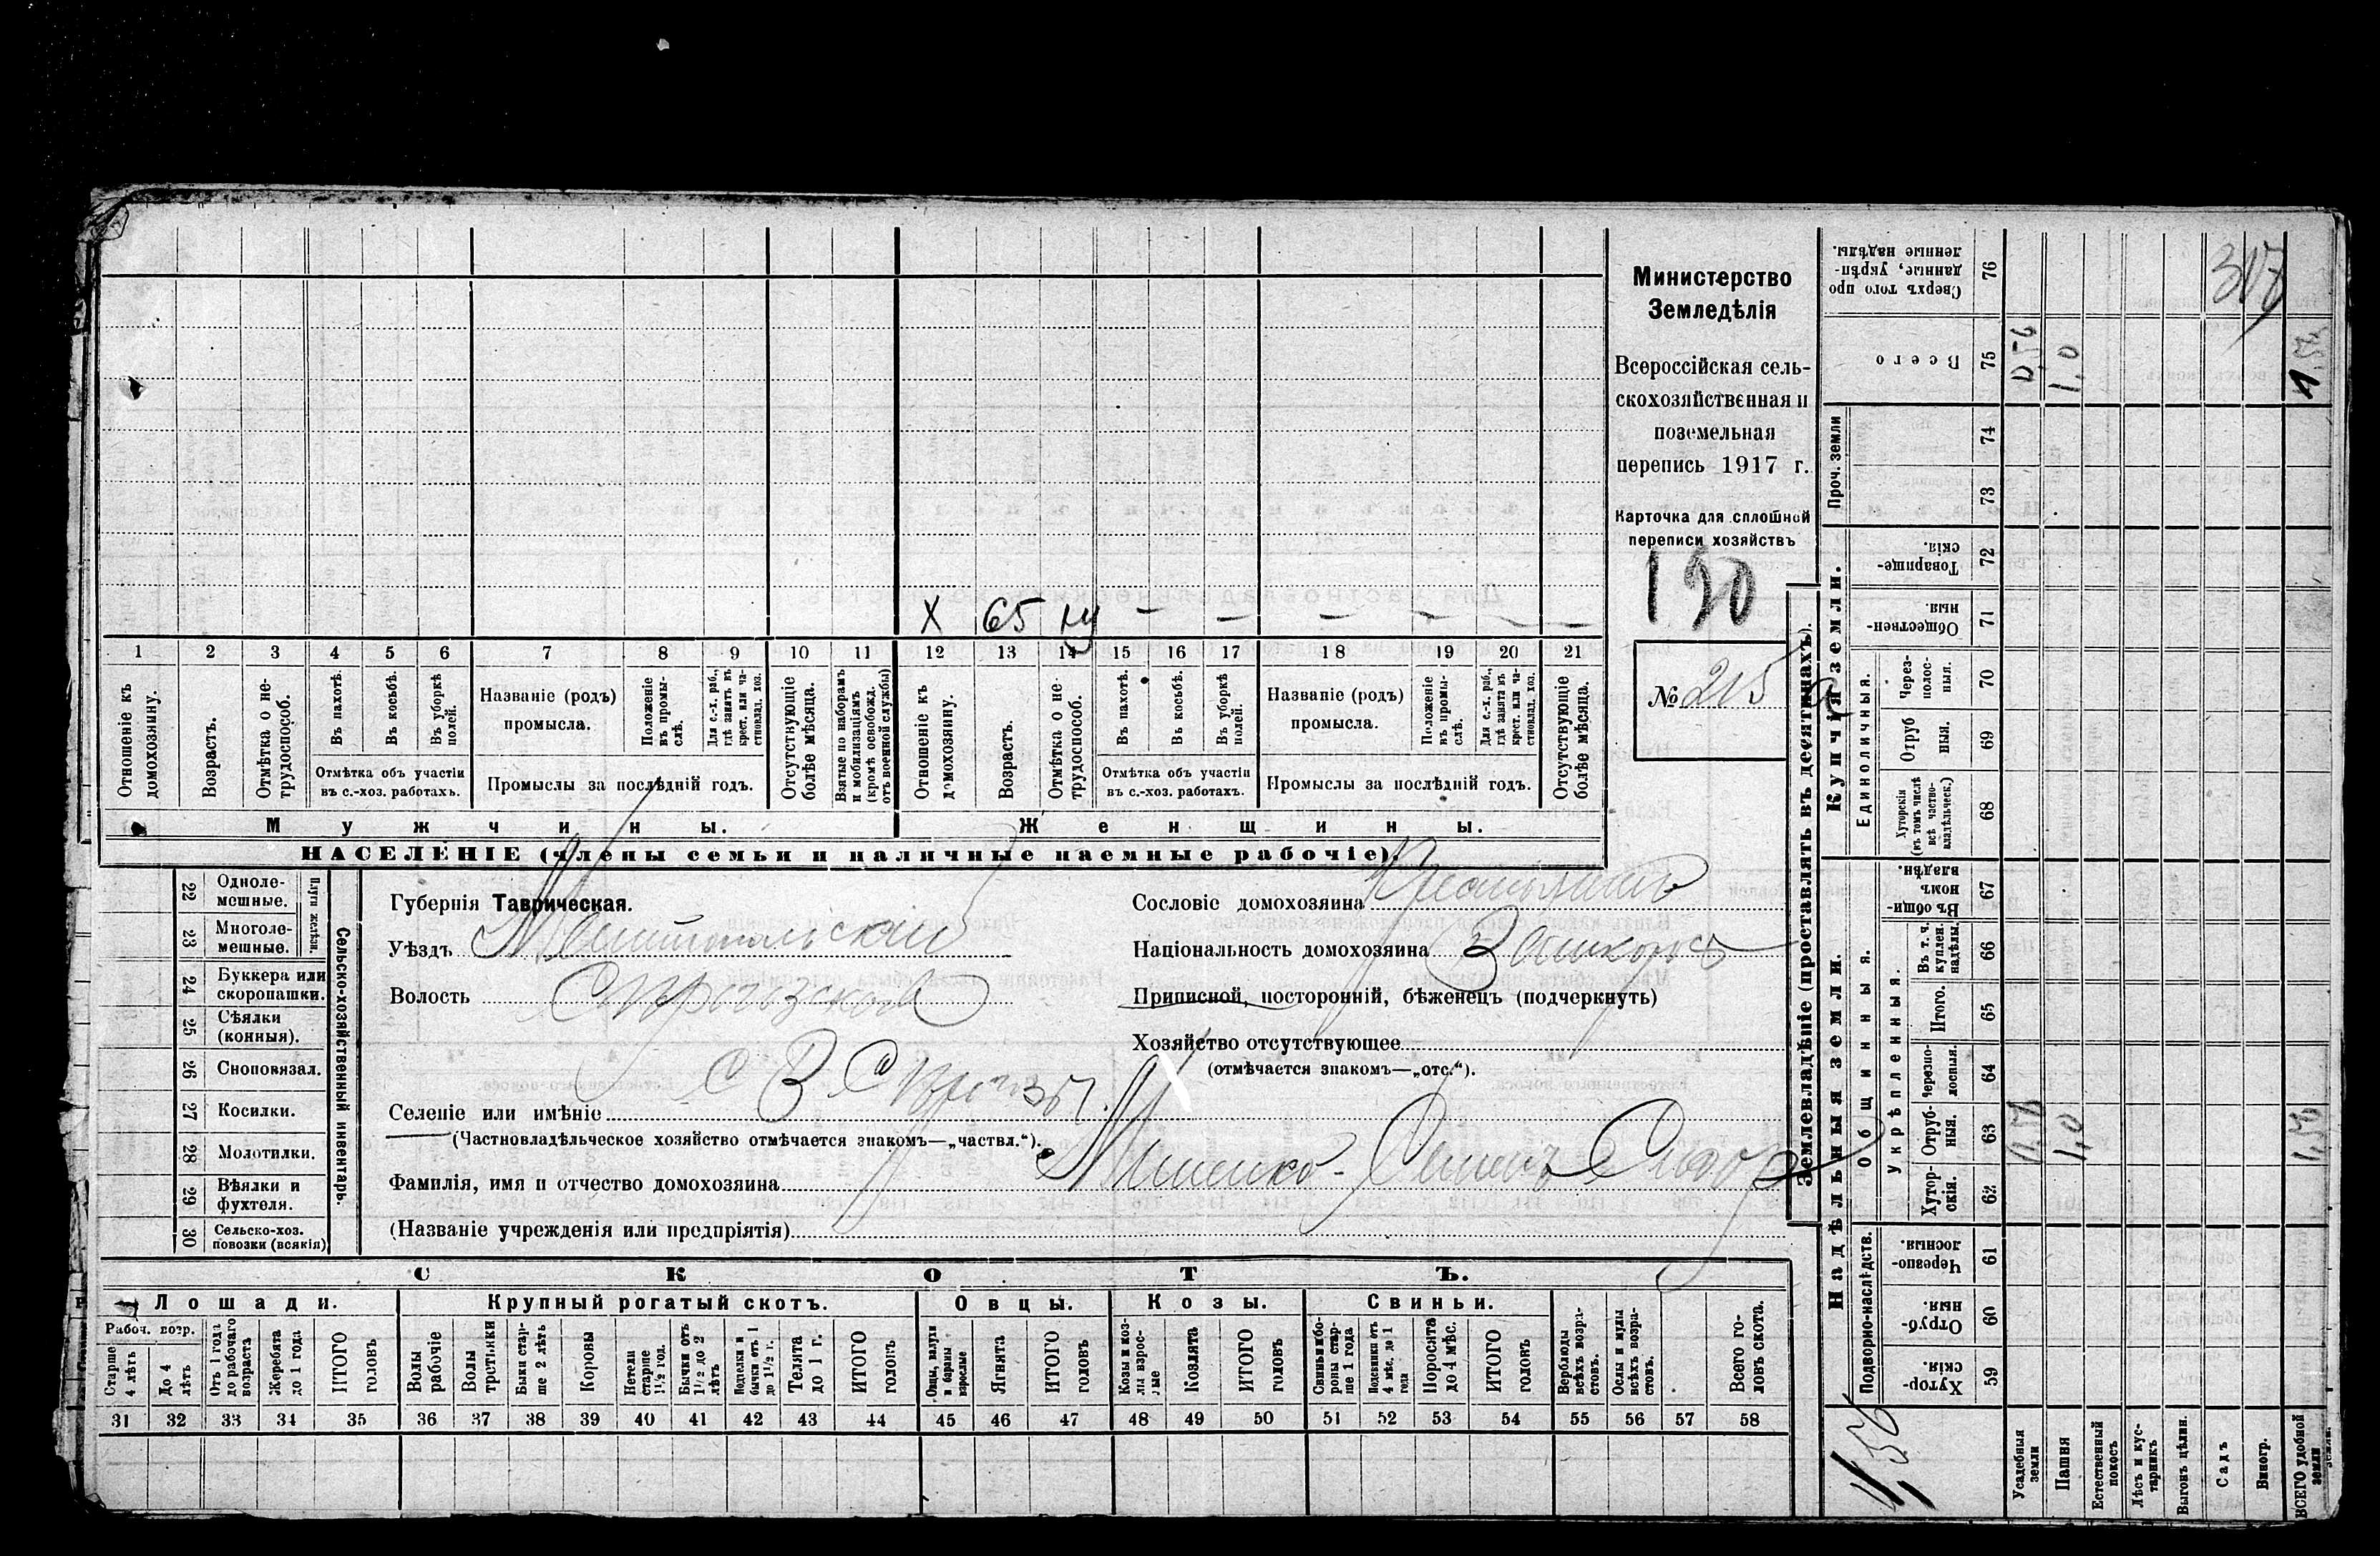 Министерство
Земледѣлія
Всероссійская сель-
скохозяйственная и
поземельная
перепись 1917 г.
Карточка для сплошной
переписи хозяйствъ
190
№ 215
Х 65 — — — — —
1 2 3 4 5 6 7 8 9 10 11 12 13 14 15 16 17 18 19 20 21
Отношеніе къ домохозяину.
Возрастъ.
Отмѣтка о не-трудоспособ.
Въ пахотѣ.
Въ косьбѣ.
Въ уборкѣ полей.
Отмѣтка объ участіи
въ с.-хоз. работахъ.
Названіе (родъ)
промысла.
Положеніе въ промы-слѣ.
Для с.-х. раб., гдѣ занятъ въ крест. или ча-стновлад. хоз.
Промыслы за послѣдній годъ.
Отсутствующіе болѣе мѣсяца.
Взятые по наборамъ и мобилизаціямъ (кромѣ освобожд. отъ военной службы)
Отношеніе къ домохозяину.
Возрастъ.
Отмѣтка о не-трудоспособ.
Въ пахотѣ.
Въ косьбѣ.
Въ уборкѣ полей.
Отмѣтка объ участіи
въ с.-хоз. работахъ.
Названіе (родъ)
промысла.
Положеніе въ промы-слѣ.
Для с.-х. раб., гдѣ занята въ крест. или ча-стновлад. хоз.
Промыслы за послѣдній годъ.
Отсутствующіе болѣе мѣсяца.
Мужчины. Женщины.
НАСЕЛЕНІЕ (члены семьи и наличные наемные рабочіе).
Сельско-хозяйственный инвентарь.
Плуги желѣзн.
22 Одноле-мешные.
23 Многоле-мешные.
24 Буккера или скоропашки.
25 Сѣялки (конныя).
26 Сноповязал.
27 Косилки.
28 Молотилки.
29 Вѣялки и фухтеля.
30 Сельско-хоз. повозки (всякія)
Губернія Таврическая.
Уѣздъ Мелитопольскій
Волость Сѣрогозской
Селеніе или имѣніе с В Сѣрогозы
(Частновладѣльческое хозяйство отмѣчается знакомъ—„частвл.“).
Сословіе домохозяина
Національность домохозяина
Приписной, посторонній, бѣженецъ (подчеркнуть)
Хозяйство отсутствующее
(отмѣчается знакомъ—„отс.“).
Фамилія, имя и отчество домохозяина
(Названіе учрежденія или предпріятія)
СКОТЪ.
Лошади. Крупный рогатый скотъ. Овцы. Козы. Свиньи.
Рабоч. возр.
Старше 4 лѣтъ
До 4 лѣтъ
Отъ 1 года до рабочаго возраста
Жеребята до 1 года
ИТОГО головъ
Волы рабочіе
Волы третьяки
Быки стар-ше 2 лѣтъ
Коровы
Нетели старше 1½ год.
Бычки отъ 1½ до 2 лѣтъ
Подтелки и бычки отъ 1 до 1½ г.
Телята до 1 г.
ИТОГО головъ
Овцы, валухи и бараны взрослые
Ягнята
ИТОГО головъ
Козы и коз-лы взрос-лые
Козлята
ИТОГО головъ
Свиньи и бо-ровы стар-ше 1 года
Подсвинки отъ 4 мѣс. до 1 года
Поросята до 4 мѣс.
ИТОГО головъ
Верблюды всѣхъ возра-стовъ.
Ослы и мулы всѣхъ возра-стовъ.
Всего го-ловъ скота.
31 32 33 34 35 36 37 38 39 40 41 42 43 44 45 46 47 48 49 50 51 52 53 54 55 56 57 58
Землевладѣніе (проставлять въ десятинахъ).
Надѣльныя земли. Купчія земли. Проч. земли
Подворно-наслѣдств.
Общинныя.
Укрѣпленныя.
Единоличныя.
Хутор-скія. 59
Отруб-ныя. 60
Черезпо-лосныя. 61
Хутор-скія. 62
Отруб-ныя. 63
Черезпо-лосныя. 64
Итого. 65
Въ т. ч. куплен. надѣлы. 66
Въ общи-номъ владѣн. 67
Хуторскія (въ томъ числѣ всѣ частно-владѣльческ.) 68
Отруб ныя. 69
Черезполос-ныя. 70
Обществен-ныя. 71
Товарище-скія. 72
73 74
Всего 75
Сверхъ того про данные, укрѣп-ленные надѣлы. 76
Усадебныя земли 0,56 0,56
Пашня 1,0 1,0
Естественный покосъ
Лѣсъ и кус-тарникъ
Выгонъ цѣлин.
Садъ
Виногр.
ВСЕГО удобной земли 1,56 1,56
317